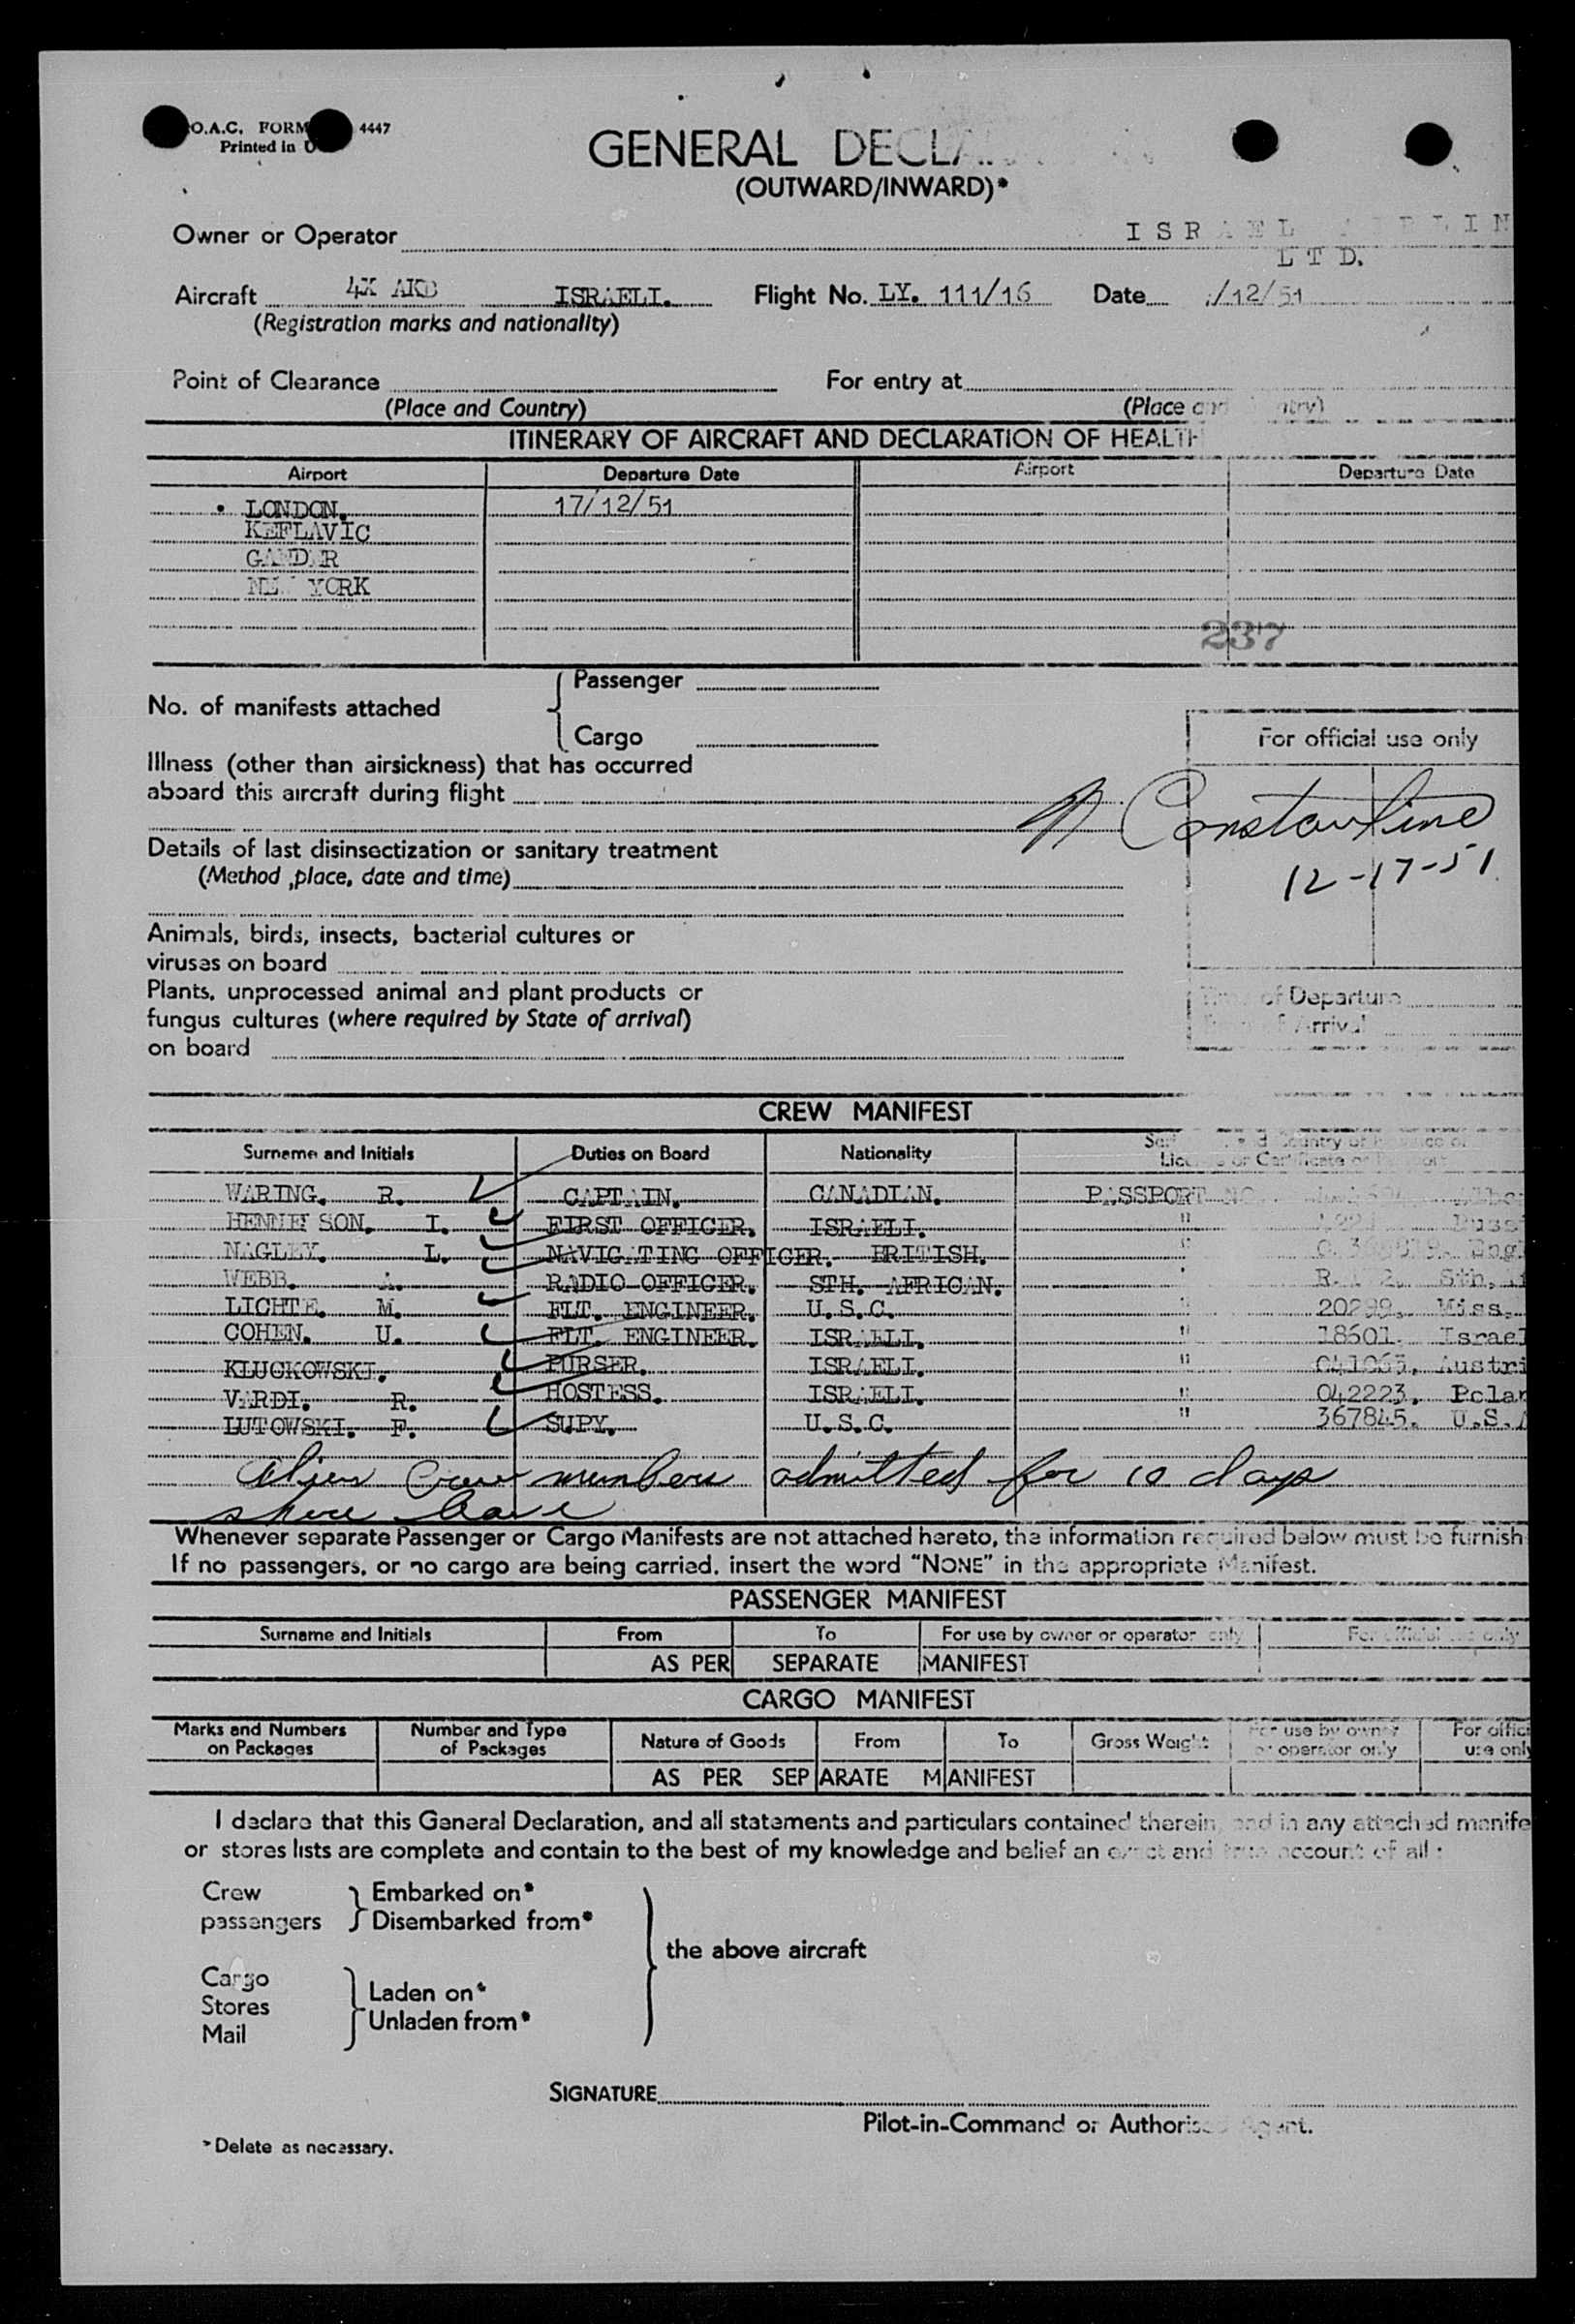 O.A.C. FORM 4447
Printed in U
GENERAL
(OUTWARD/INWARD)*
Owner or Operator
LTD.
Aircraft 4X AKB ISRAELI. Flight No. LY. 111/16 Date /12/51
(Registration marks and nationality)
Point of Clearance For entry at
(Place and Country) (Place and Country)
ITINERARY OF AIRCRAFT AND DECLARATION OF HEALTH
Airport Departure Date Airport Departure Date
LONDON. 17/12/51
KEFLAVIC
GANDER
NEW YORK
237
No. of manifests attached { Passenger
Cargo
For official use only
Illness (other than airsickness) that has occurred
aboard this aircraft during flight
N Constantine
12-17-51
Details of last disinsectization or sanitary treatment
(Method ,place, date and time)
Animals, birds, insects, bacterial cultures or
viruses on board
Plants, unprocessed animal and plant products or
fungus cultures (where required by State of arrival)
on board
of Departure
Arrival
CREW MANIFEST
Surname and Initials Duties on Board Nationality
WARING. R. CAPTAIN. CANADIAN. PASSPORT NO.
I. FIRST OFFICER. ISRAELI. "
NAGLEY. L. NAVIGATING OFFICER. BRITISH. "
WEBB. A. RADIO OFFICER. STH. AFRICAN. "
LICHTE. M. FLT. ENGINEER. U.S.C. " 20299. Miss.
COHEN. U. FLT. ENGINEER. ISRAELI. " 18601. Israel
KLUCKOWSKI. PURSER. ISRAELI. " Austri
VARDI. R. HOSTESS. ISRAELI. " 042223. Polan
LUTOWSKI. F. SUPY. U.S.C. " 367845. U.S.A
Alien Crew members admitted for 10 days
shore leave
Whenever separate Passenger or Cargo Manifests are not attached hereto, the information required below must be furnish
If no passengers, or no cargo are being carried, insert the word "NONE" in the appropriate Manifest.
PASSENGER MANIFEST
Surname and Initials From To For use by owner or operator only For official use only
AS PER SEPARATE MANIFEST
CARGO MANIFEST
Marks and Numbers on Packages Number and Type of Packages Nature of Goods From To Gross Weight For use by owner or operator only For offici use only
AS PER SEPARATE MANIFEST
I declare that this General Declaration, and all statements and particulars contained therein, and in any attached manife
or stores lists are complete and contain to the best of my knowledge and belief an exact and true account of all :
Crew } Embarked on*
passengers } Disembarked from*
the above aircraft
Cargo
Stores } Laden on*
Mail } Unladen from*
SIGNATURE
Pilot-in-Command or Authorised Agent.
*Delete as necessary.